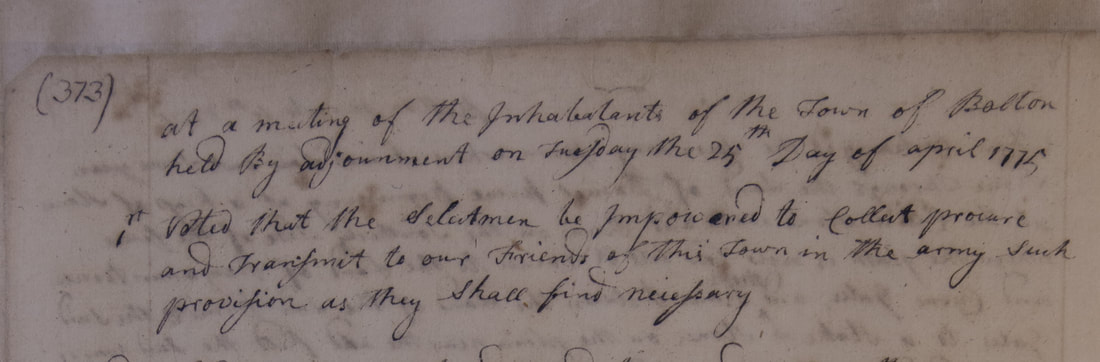 (373)
at a meeting of the Inhabatants of the Town of Bolton
held By adjournment on Tuesday the 25th Day of april 1775
1st Voted that the Selectmen be Impowered to Collect procure
and Transmit to our Friends of this Town in the army Such
provision as they Shall find necessary